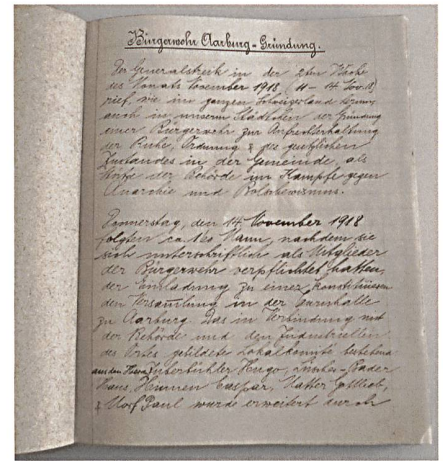 Bürgerwehr Aarburg-Gründung.
Der Generalstreik in der 2ten Woche
des Monats November 1918 (11 – 14 Nov. 18)
rief, wie im ganzen Schweizerland herum,
auch in unserm Städtchen der Gründung
einer Bürgerwehr zur Aufrechterhaltung
der Ruhe, Ordnung & des gesetzlichen
Zustandes in der Gemeinde, als
Stütze der Behörde im Kampfe gegen
Anarchie und Bolschewismus.
Donnerstag, den 14. November 1918
folgten ca. Mann, nachdem sie
sich unterschriftlich als Mitglieder
der Bürgerwehr verpflichtet hatten,
der Einladung zu einer konstituieren
den Versammlung in der Turnhalle
zu Aarburg. Das in Verbindung mit
der Behörde und den Industriellen
des Ortes gebildete Lokalkomite bestehend
aus den Herren Hugo,
Hans, Caspar, Gottlieb,
& Paul wurde erweitert durch